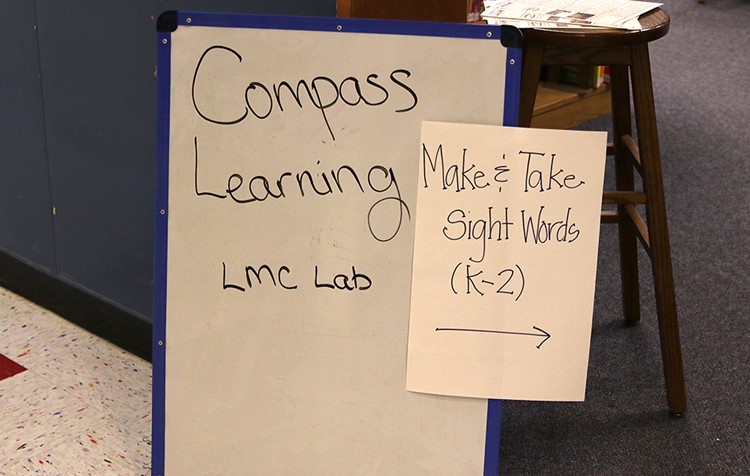 Compass
Learning
LMC Lab
Make & Take
Sight Words
(K-2)